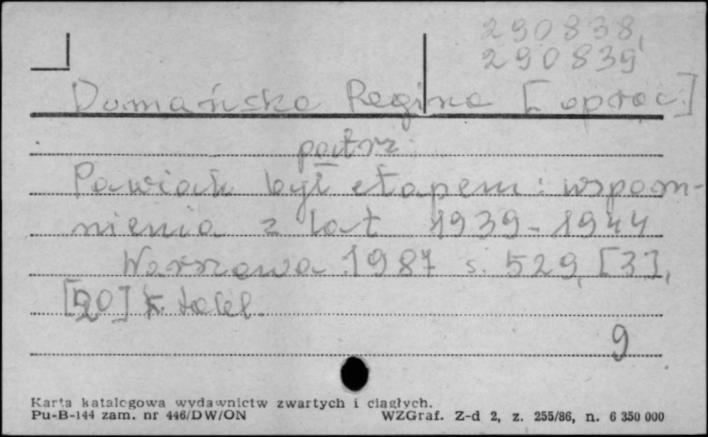 290838,
290839
Domańska Regina [oprac.]
patrz
Pawiak był etapem: wspom-
nienia z lat 1939-1944
Warszawa 1987 s. 529, [3],
[20] k. tabl.
9
Karta katalogowa wydawnictw zwartych i ciągłych.
Pu-B-144 zam. nr 446/DW/ON WZGraf. Z-d 2, z. 255/86, n. 6 350 000